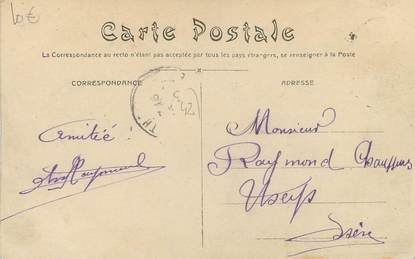 10€
Carte Postale
La Correspondance au recto n'étant pas acceptée par tous les pays étrangers, se renseigner à la Poste
CORRESPONDANCE
ADRESSE
Amitiée!
Monsieur
Raymond
Isère